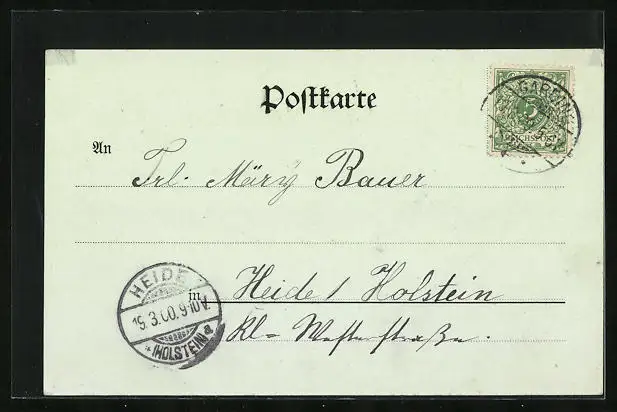 Postkarte
GARDING
REICHSPOST
5
An
Frl. Märy Bauer
in Heide / Holstein
Kl. Westerstraße.
HEIDE
19.3.00.9-10V.
*(HOLSTEIN)a